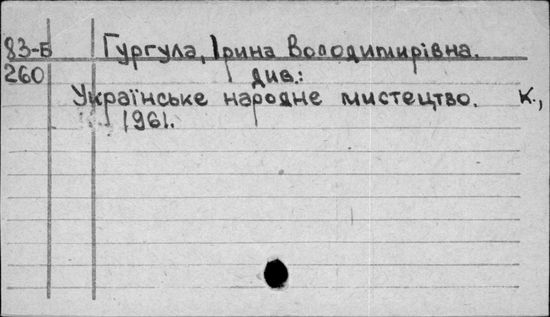 83-Б Гургула, Ірина Володимирівна.
260 див.:
Українське народне мистецтво. К.,
1961.